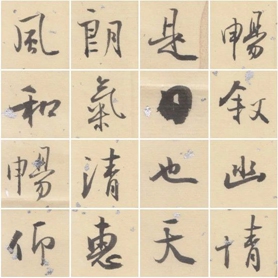 暢叙幽情
是日也天
朗氣清惠
風和暢仰